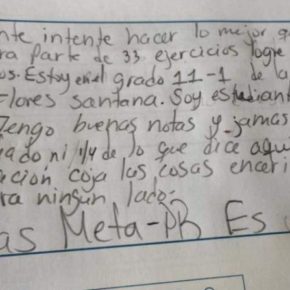 nte intente hacer lo mejor q
ra parte de 33 ejercicios logre
os. Estoy en el grado 11-1 de la
Flores santana. Soy estudiant
Tengo buenas notas y jamas
ado ni 1/4 de lo que dice aqui
ación, coja las cosas enceri
ra ningún lado.
as Meta-PR Es